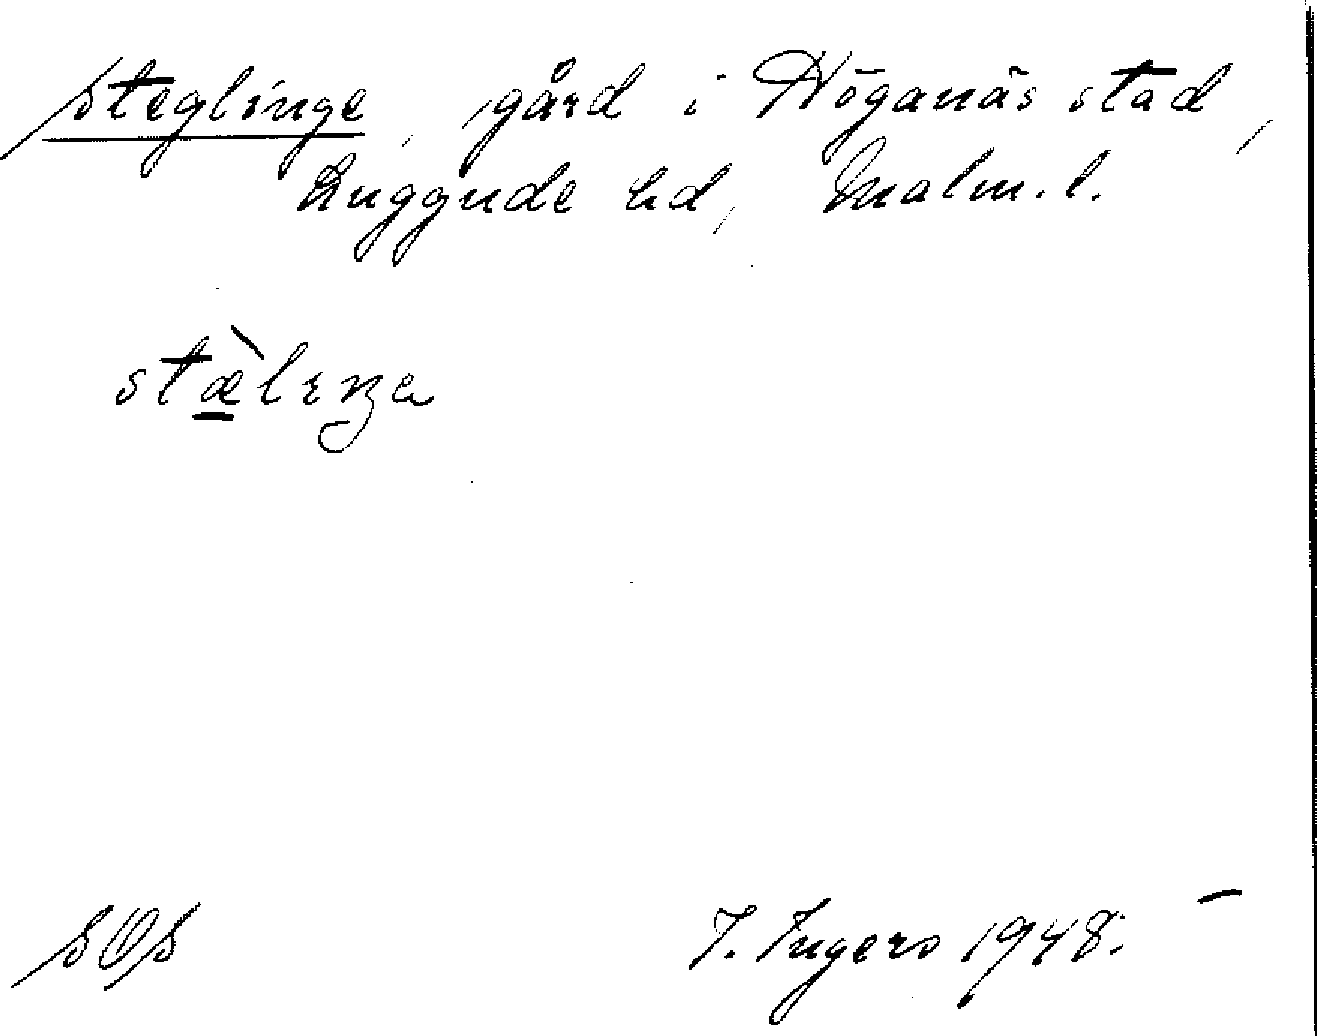 Steglinge, gård i Höganäs stad,
Luggude hd, Malm. l.
stæ̀lɪŋa
SOS
I. Ingers 1948. –